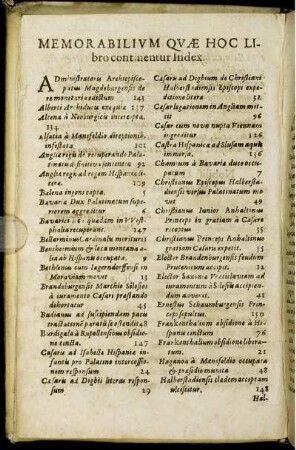 MEMORABILIVM QVÆ HOC LI-
bro continentur Index.
ADministratoris Archiepisco-
patus Magdeburgensis de
re monetaria edictum 143
Alberti Archiducis exequiæ 137
Altena à Neoburgicis intercepta,
134
Alsatia à Mansfeldio direptionib.
infestata 101
Angliæ regis de recuperando Pala-
tinatu cōstitutio sincera 92
Angliæ regis ad regem Hispaniæ li-
teræ. 109
Balena ingens capta. 5
Bavariæ Dux Palatinatum supe-
riorem aggreditur 6
Bavaris quædam in Westphalia
recuperant. 127
Bellarminus Cardinalis moritur 1
Bensheimium & loca montana a-
lia ab Hispanis occupata. 9
Bethlenus cum Iagerndorffensi in
Moraviam movet 13
Brandeburgensis Marchio Silesios
à iuramento Cæsari præstando
dehortatur 45
Budianus ad suscipiendam pacis
tractationē paratū se ostendit 8
Burdigala à Rupellensibus obsidio-
ne cincta. 147
Cæsaris ad Isabellæ Hispaniæ in-
fantis pro Palatino intercessio-
nem responsum 24
Cæsaris ad Digbii literas respon-
sum 29
Cæsaris ad Digbeum de Christiani
Halberstadiensis Episcopi expe-
ditione literæ 32.
Cæsar legationem in Angliam mit-
tit 96
Cæsar cum nova nupta Viennam
ingreditur 126
Castra Hispanica ad Clusam aquis
immersa, 136
Chamum à Bavaris duce occu-
patum 7
Christianus Episcopus Halberstadi-
ensis versus Palatinatum mo-
vet 32
Christianus Iunior Anhaltinus
Princeps in gratiam à Cæsare
receptus 55
Christianus Princeps Anhaltinus
gratiam Cæsaris expetit. 12
Elector Brandenburgensis feudum
Prutenicum accipit. 12
Elector Saxoniæ Protestationem ad
iuramentum à Silesiis accipien-
dum advenit. 41
Ernestus Schaumburgensis Prin-
ceps sepultus. 50
Francothalium obsidione à Hi-
spanis cinctum 76
Frankenthalium obsidione libera-
tum. 21
Haganoa à Mansfeldio occupata
& præsidio munita 48
Halberstadiensis cladem acceptam
ulciscitur. 148
Hal.